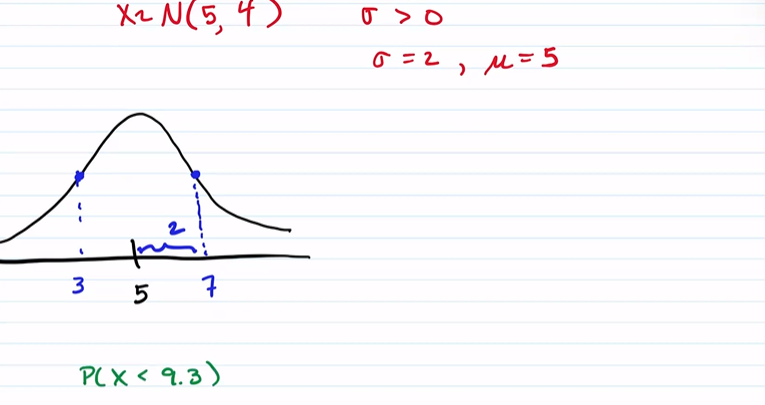 X~ N(5, 4) σ > 0
σ = 2, μ = 5
2
3 5 7
P(X < 9.3)